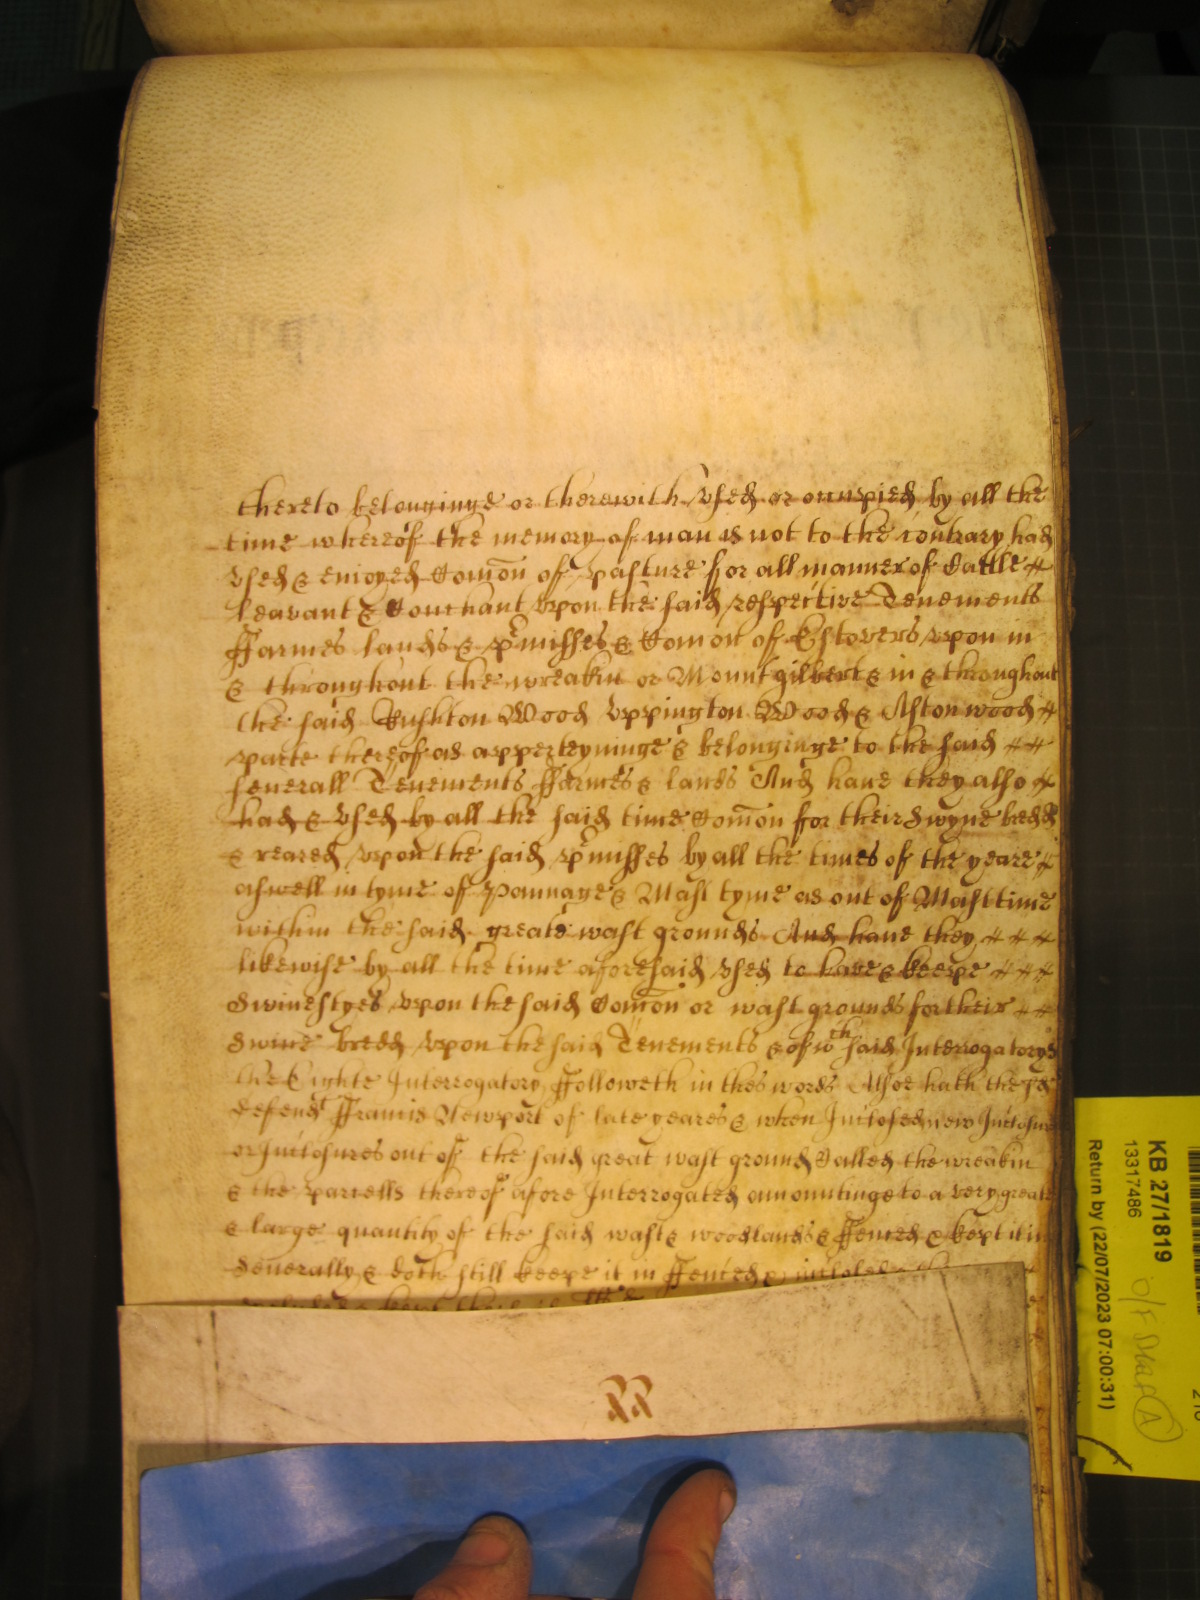 thereto belonginge or therewith vsed or occupied by all the
time whereof the memory of man is not to the contrary had
vsed & enioyed Comōn of pasture for all manner of Cattle
leavant & Couchant vpon the said respective Tenements
ffarmes lands & p'misses & Comon of Estovers vpon in
& throughout the wreakin or Mount gilbert & in & throughout
the said Rushton Wood Vppington Wood & Aston wood
parte thereof as apperteyninge & belonginge to the said
severall Tenements ffarmes & lands And haue they also
had & vsed by all the said time Comōn for their Swyne bredd
& reared vpon the said p'misses by all the times of the yeare
aswell in tyme of pannage & Mast tyme as out of Mast time
within the said greate wast grounds And haue they
likewise by all the time aforesaid vsed to have & keepe
Swinestyes vpon the said Comōn or wast grounds for their
Swine bredd vpon the said Tenements & of wch said Interrogatorys
the Eighte Interrogatory ffolloweth in thes words Alsoe hath the sd
defendt ffrancis Newport of late yeares & when Inclosed new Inclosure
or Inclosures out of the said great wast ground Called the wreakin
& the parcells thereof afore Interrogated amountinge to a very greate
& large quantity of the said wast & woodlands & ffenced & kept it in
Severally & doth still keepe it in ffenced & inclosed
KB 27/1819
13317486
Return by (22/07/2023 07:00:31)
O/F Staf A